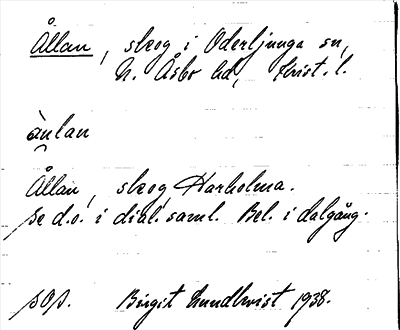 Ållan, skog i Oderljunga sn,
N. Åsbo hd, Krist. l.
ànlan
Ållan, skog, Harholma.
Se d.o. i dial. saml. Bel. i dalgång.
sop. Birgit Lundkvist 1938.